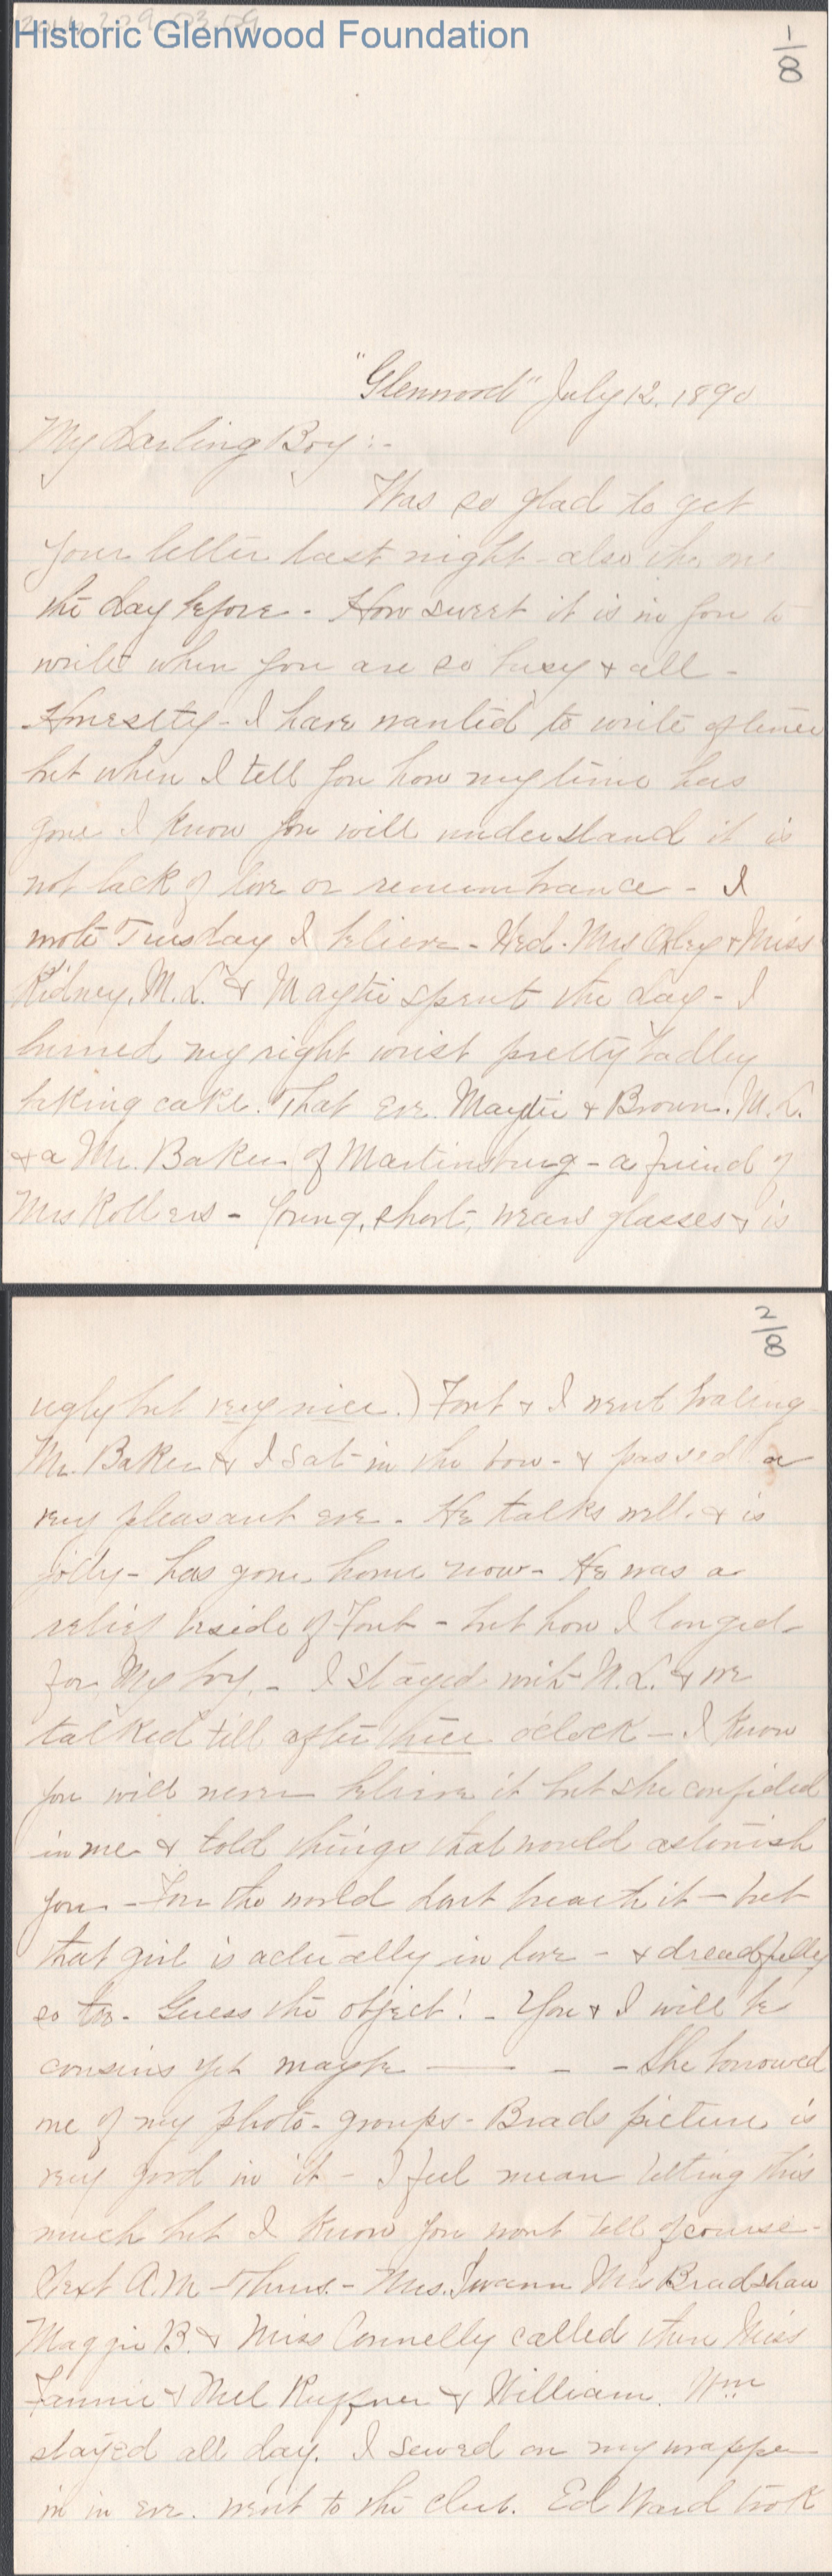 Historic Glenwood Foundation
1/8
"Glenwood" July 12. 1890
My Darling Boy :-
Was so glad to get
your letter last night - also the one
the day before - How sweet it is in you to
write when you are so busy & all -
Honestly - I have wanted to write oftener
but when I tell you how my time has
gone I know you will understand it is
not lack of love or remembrance - I
wrote Tuesday I believe - Wed. Mrs Oxley & Miss
Kidney, M.L. & Maytie spent the day - I
burned my right wrist pretty badly
baking cake. That eve. Maytie & Brown. M.L.
& a Mr. Baker of Martinsburg - a friend of
Mrs Rollers - Young, short, wears glasses & is
2/8
ugly but very nice.) Font & I went
Mr. Baker & I sat in the bow - & passed a
very pleasant eve - He talks well - & is
jolly - has gone home now - He was a
relief beside of Font - but how I longed
for My boy. - I stayed with M.L. & we
talked till after three o'clock - I know
you will never believe it but she confided
in me & told things that would astonish
you - For the world dont breath it - but
that girl is actually in love - & dreadfully
so too - Guess the object! - You & I will be
cousins yet maybe — - - - She borrowed
one of my photo-groups - Brads picture is
very good in it - I feel mean telling this
much but I know you wont tell of course -
Next A.M - Thurs - Mrs. Swann Mrs Bradshaw
Maggie B. & Miss Connelly called then Miss
Fannie & Mel Ruffner & William. Wm
stayed all day. I sewed on my wrapper
in eve. went to the club. Ed Ward took